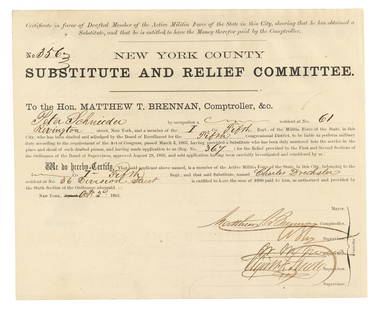 Certificate in favor of Drafted Member of the Active Militia Force of the State in this City, showing that he has obtained a
Substitute, and that he is entitled to have the Money therefor paid by the Comptroller.
No. 356
NEW YORK COUNTY
SUBSTITUTE AND RELIEF COMMITTEE.
To the Hon. MATTHEW T. BRENNAN, Comptroller, &c.
Peter Schneider by occupation a resident at No. 61
Rivington street, New York, and a member of the Dept. of the Militia Force of the State, in this
City, who has been drafted and adjudged by the Board of Enrollment for the Congressional District, to be liable to perform military
duty according to the requirement of the Act of Congress, passed March 3, 1863, having provided a Substitute who has been duly mustered into the service in
place and stead of such drafted person, and having made application to us (App. No. 367 for the Relief provided by the First and Second Sections
of the Ordinance of the Board of Supervisors, approved August 28, 1863, and said application having been carefully investigated and considered by us
We do hereby Certify, That said applicant above named, is a member of the Active Militia Force of the State, in this City, belonging to the
Dept., and that said Substitute, named Charles
resident at 36 Division Street is entitled to have the sum of $300 paid to him, as authorized and provided by the
Sixth Section of the Ordinance aforesaid
New York, Oct 2 1863.
Mayor.
Comptroller.
Supervisor.
Supervisor.